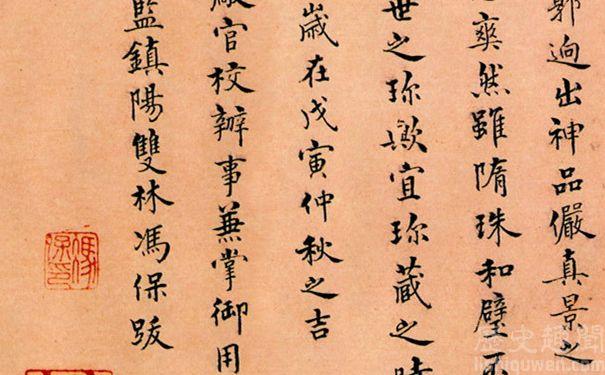 郭迥出神品儼真景之
爽然雖隋珠和璧
世之珎歟宜珎藏之時
歲在戊寅仲秋之吉
廠官校辦事兼掌御用
監鎮陽雙林馮保跋
歷史趣聞
lishiquwen.com